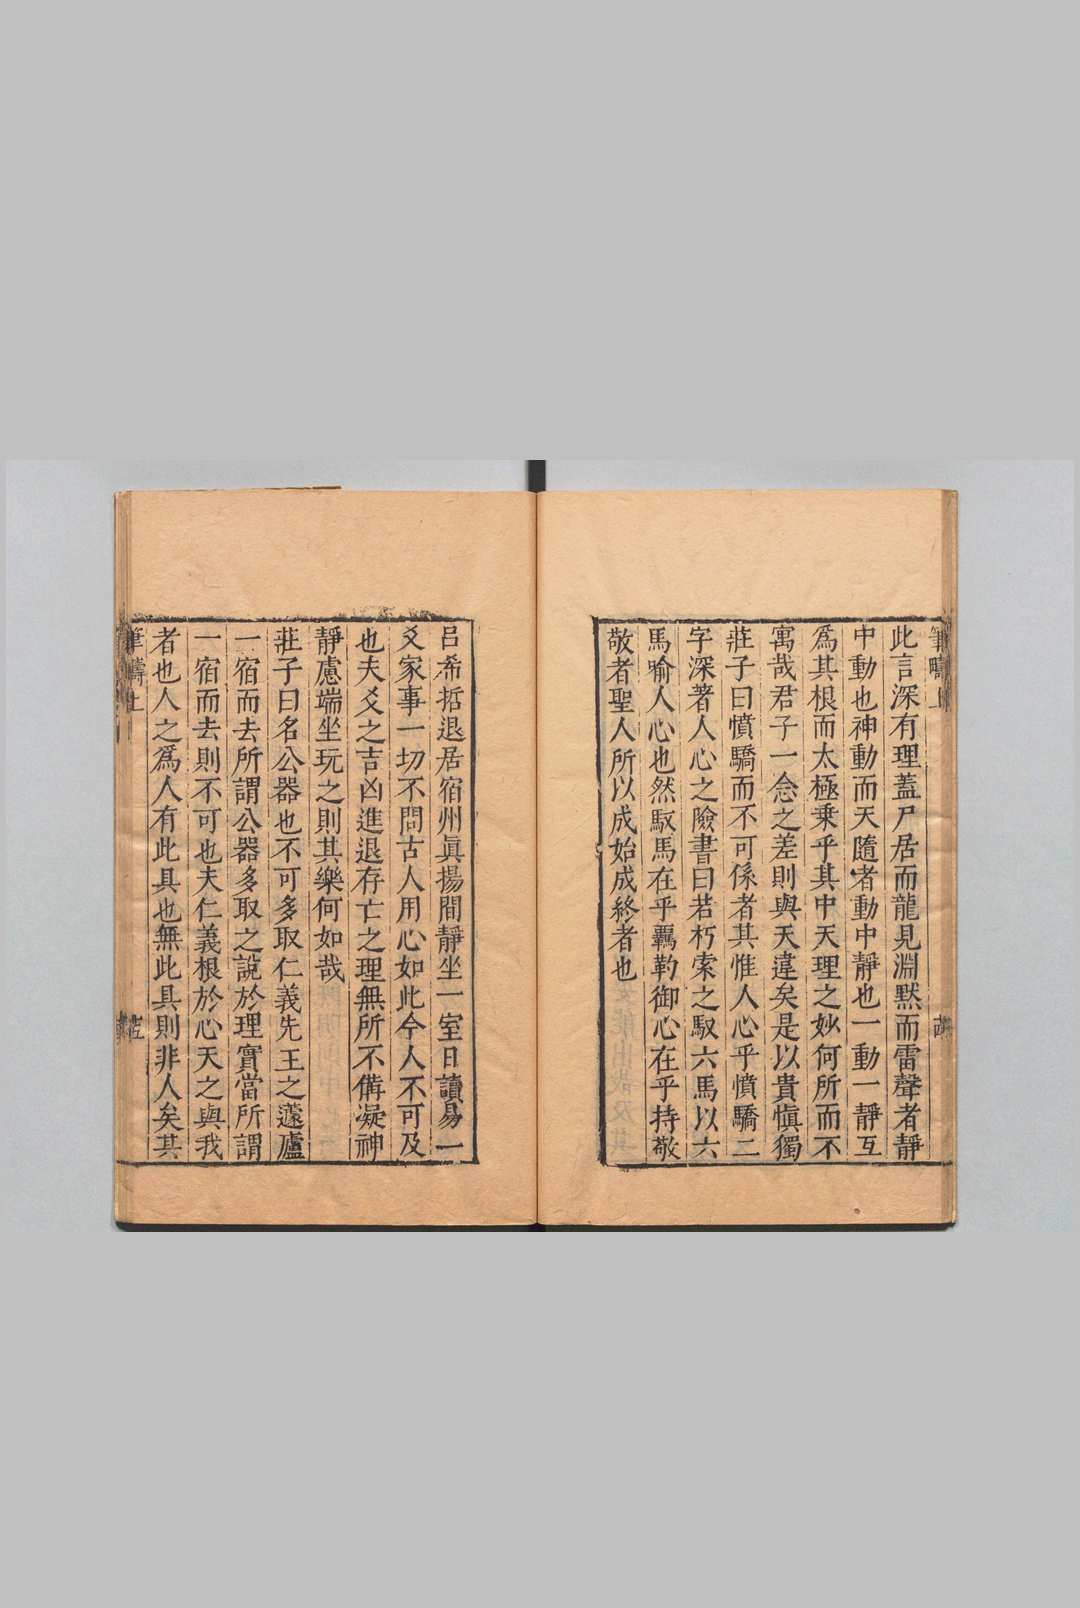 筆疇上
此言深有理蓋尸居而龍見淵默而雷聲者靜
中動也神動而天隨者動中靜也一動一靜互
爲其根而太極乗乎其中天理之妙何所而不
寓哉君子一念之差則與天違矣是以貴愼獨
莊子曰憤驕而不可係者其惟人心乎憤驕二
字深著人心之險書曰若朽索之馭六馬以六
馬喻人心也然馭馬在乎羈勒御心在乎持敬
敬者聖人所以成始成終者也
吕希哲退居宿州眞揚間靜坐一室日讀易一
爻家事一切不問古人用心如此今人不可及
也夫爻之吉凶進退存亡之理無所不備凝神
靜慮端坐玩之則其樂何如哉
莊子曰名公器也不可多取仁義先王之蘧廬
一宿而去所謂公器多取之說於理實當所謂
一宿而去則不可也夫仁義根於心天之與我
者也人之爲人有此具也無此具則非人矣其
筆疇上